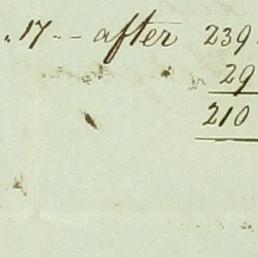 " 17 -- after 239
29
210